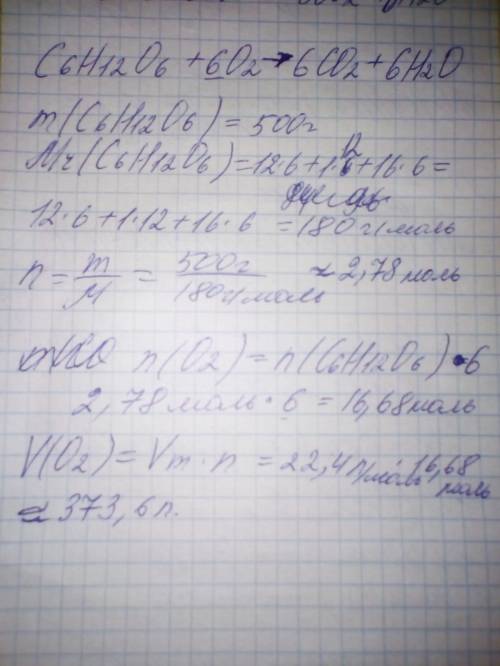 C6H12O6 + 6O2 → 6CO2 + 6H2O
m(C6H12O6) = 500г
Mr(C6H12O6) = 12·6+1·12+16·6 =
12·6+1·12+16·6 = 180 г/моль
n = m/M = 500г/180г/моль ≈ 2,78 моль
n(O2) = n(C6H12O6)·6
2,78 моль · 6 = 16,68 моль
V(O2) = Vm·n = 22,4 л/моль · 16,68 моль
≈ 373,6 л.